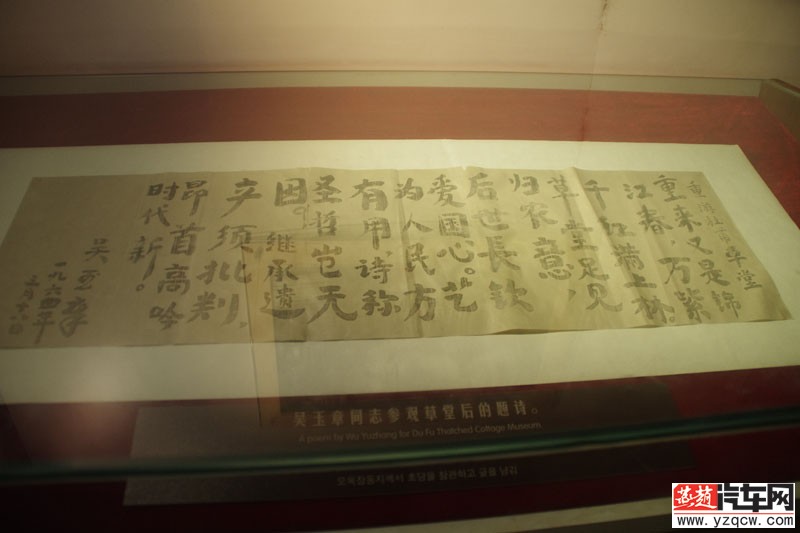 重游杜甫草堂
重来又是锦
江春，万紫
千红满上林
草堂足见
归农意，
后世長钦
爱国心。艺
为人民方
有用，诗称
圣哲岂天
因。继承遗
产须批判，
昂首高吟
时代新。
吴玉章
一九六四年
吴玉章同志参观草堂后的题诗。
A poem by Wu Yuzhang for Du Fu Thatched Cottage Museum
오옥장동지께서 초당을 참관하고 글을 남김
燕趙汽车网
www.yzqcw.com